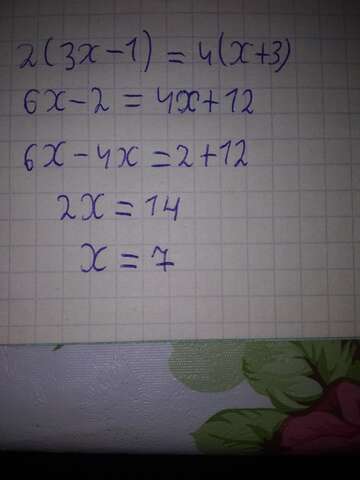 2(3x-1)=4(x+3)
6x-2=4x+12
6x-4x=2+12
2x=14
x=7